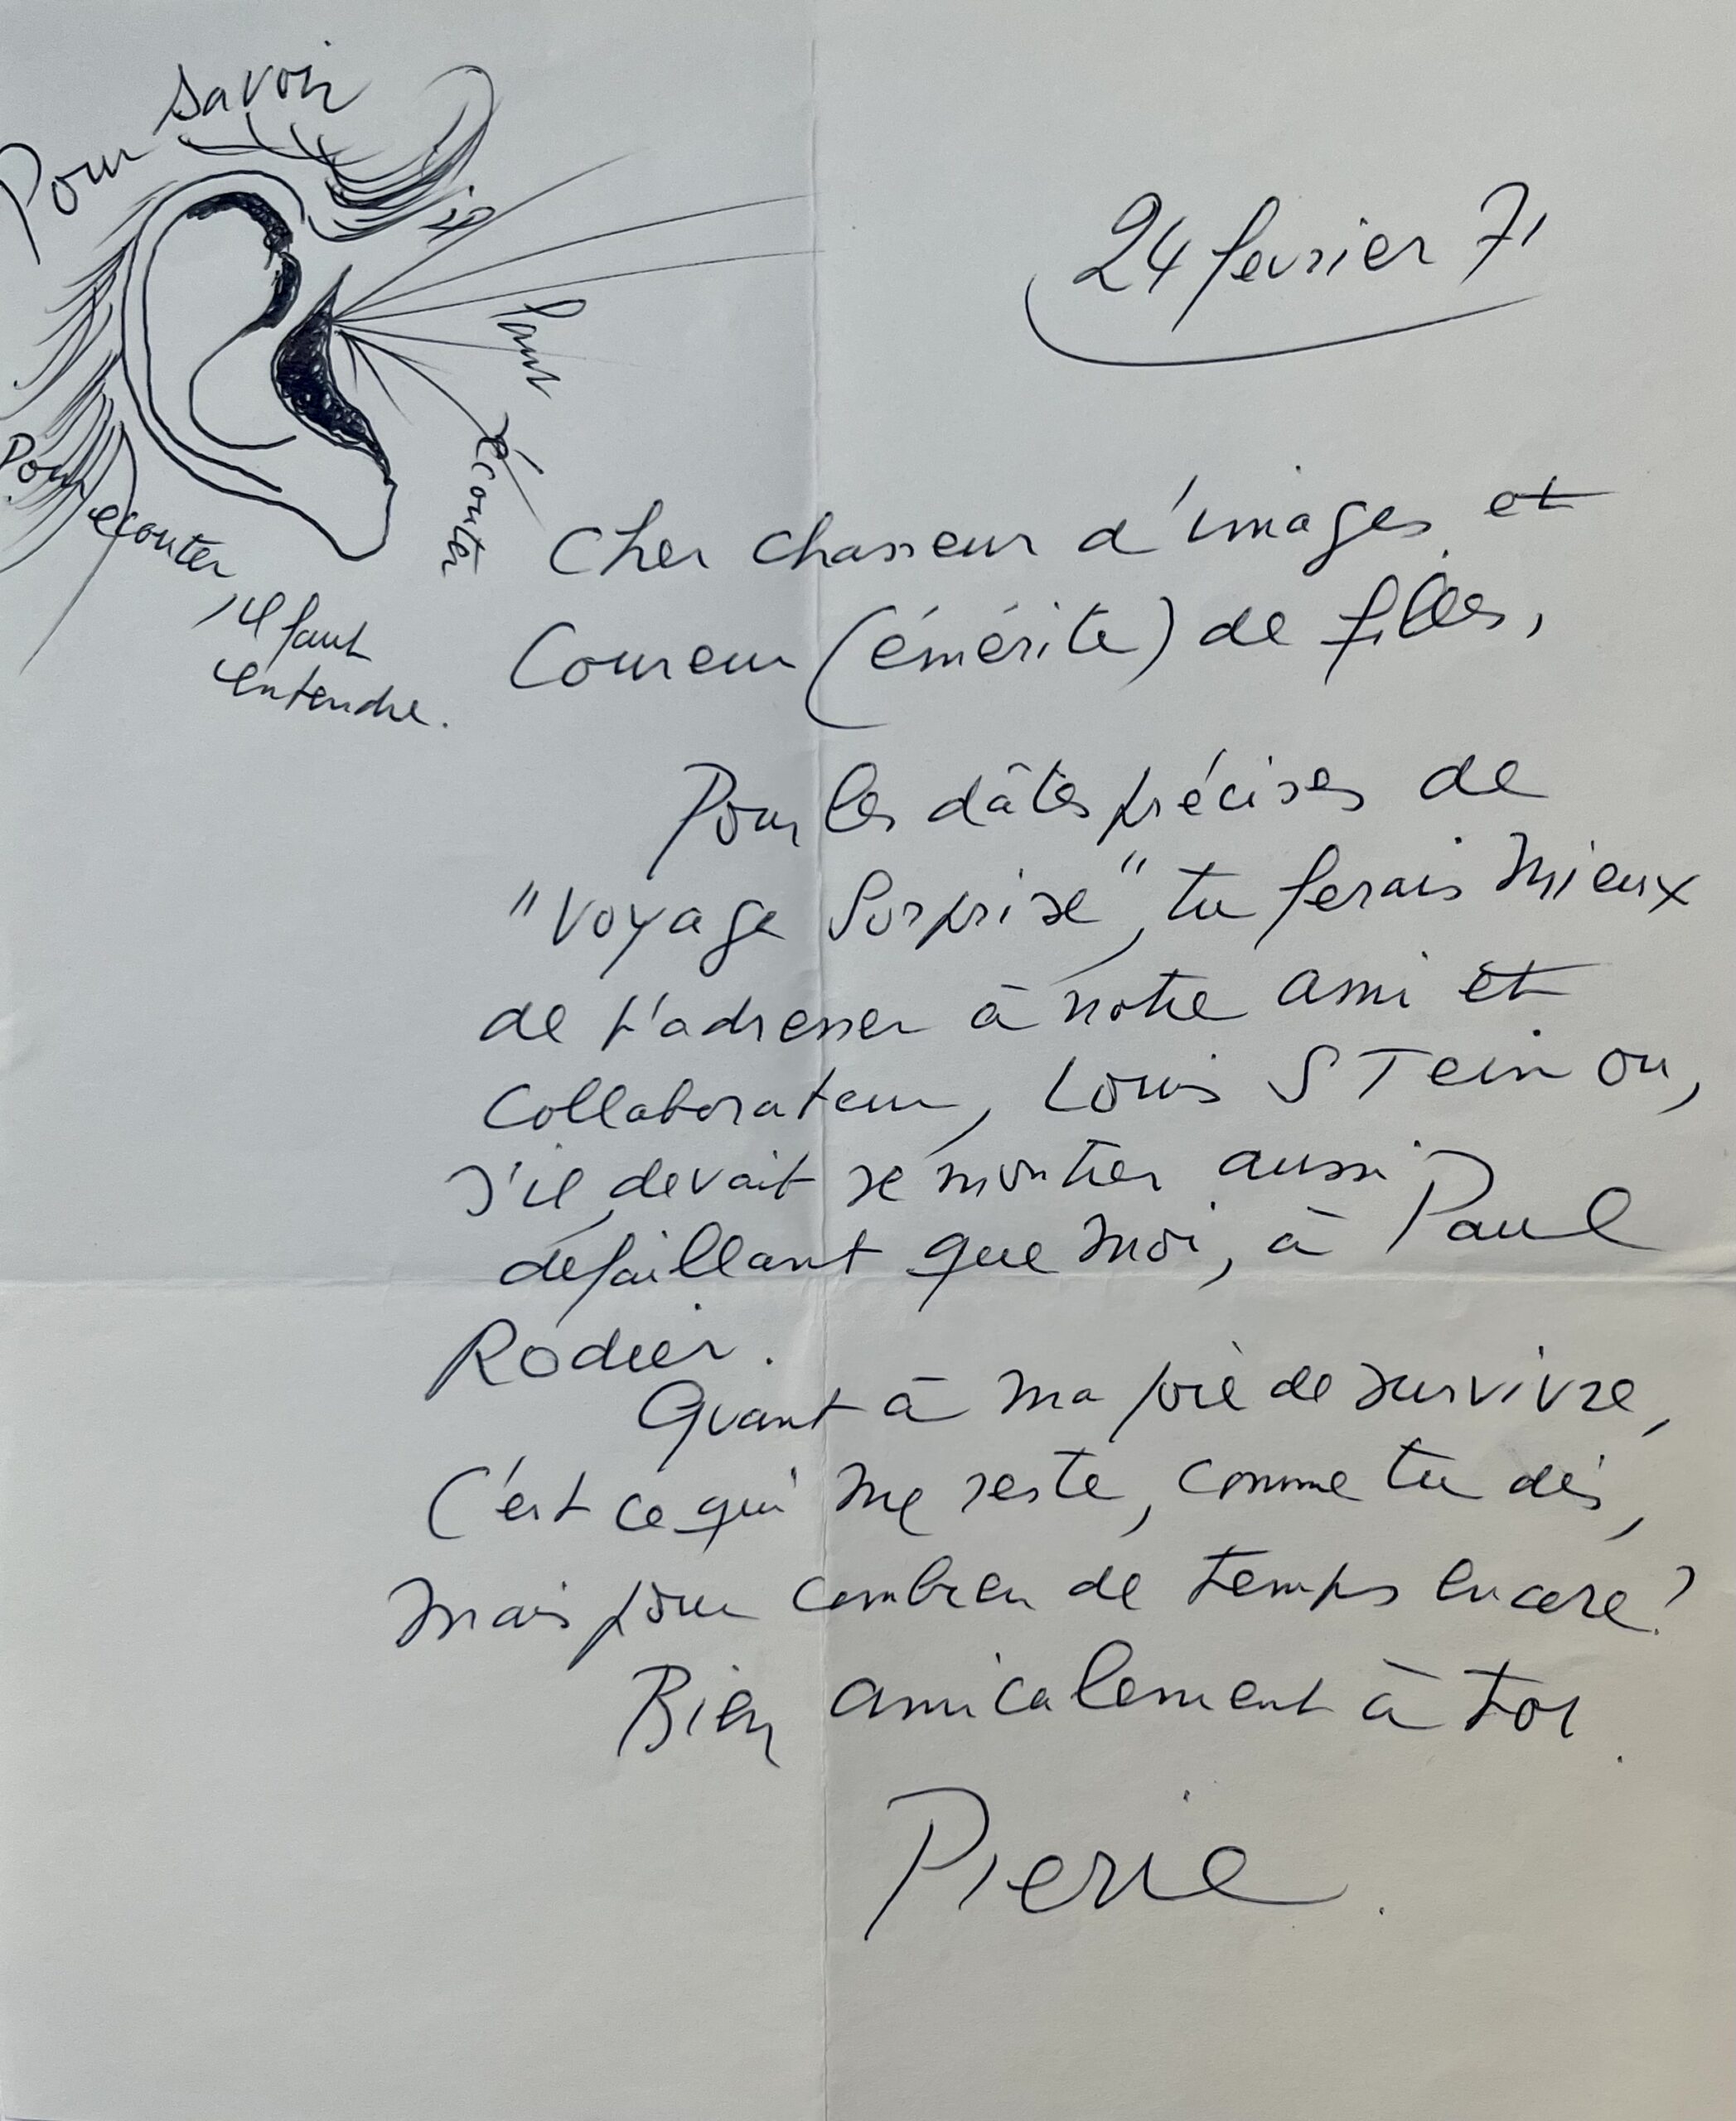 Pour savoir
il
faut
écouter
Pour
écouter,
il faut
entendre.
24 février 71
Cher chasseur d'images et
Coureur (émérite) de filles,
Pour les dâtes précises de
"Voyage Surprise", tu ferais mieux
de t'adresser à notre ami et
collaborateur, Louis STein ou,
s'il devait se montrer aussi
défaillant que moi, à Paul
Rodier.
Quant à ma joie de survivre,
C'est ce qui me reste, comme tu dis,
mais pour combien de temps encore?
Bien amicalement à toi.
Pierre.